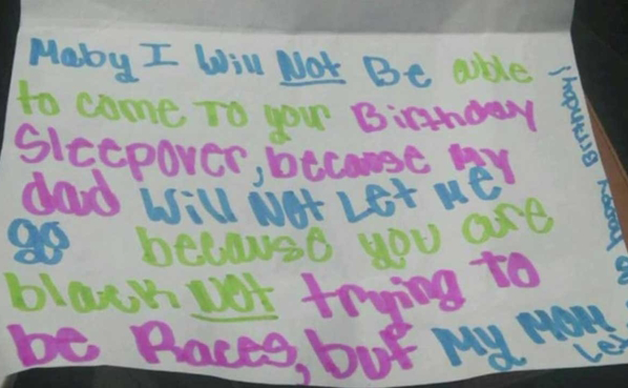 Maby I Will Not Be able
to come To your Birthday
Sleepover, because My
dad Will Not Let Me
go because you are
black Not trying to
be Races, but My MOM
Let
Birthday!